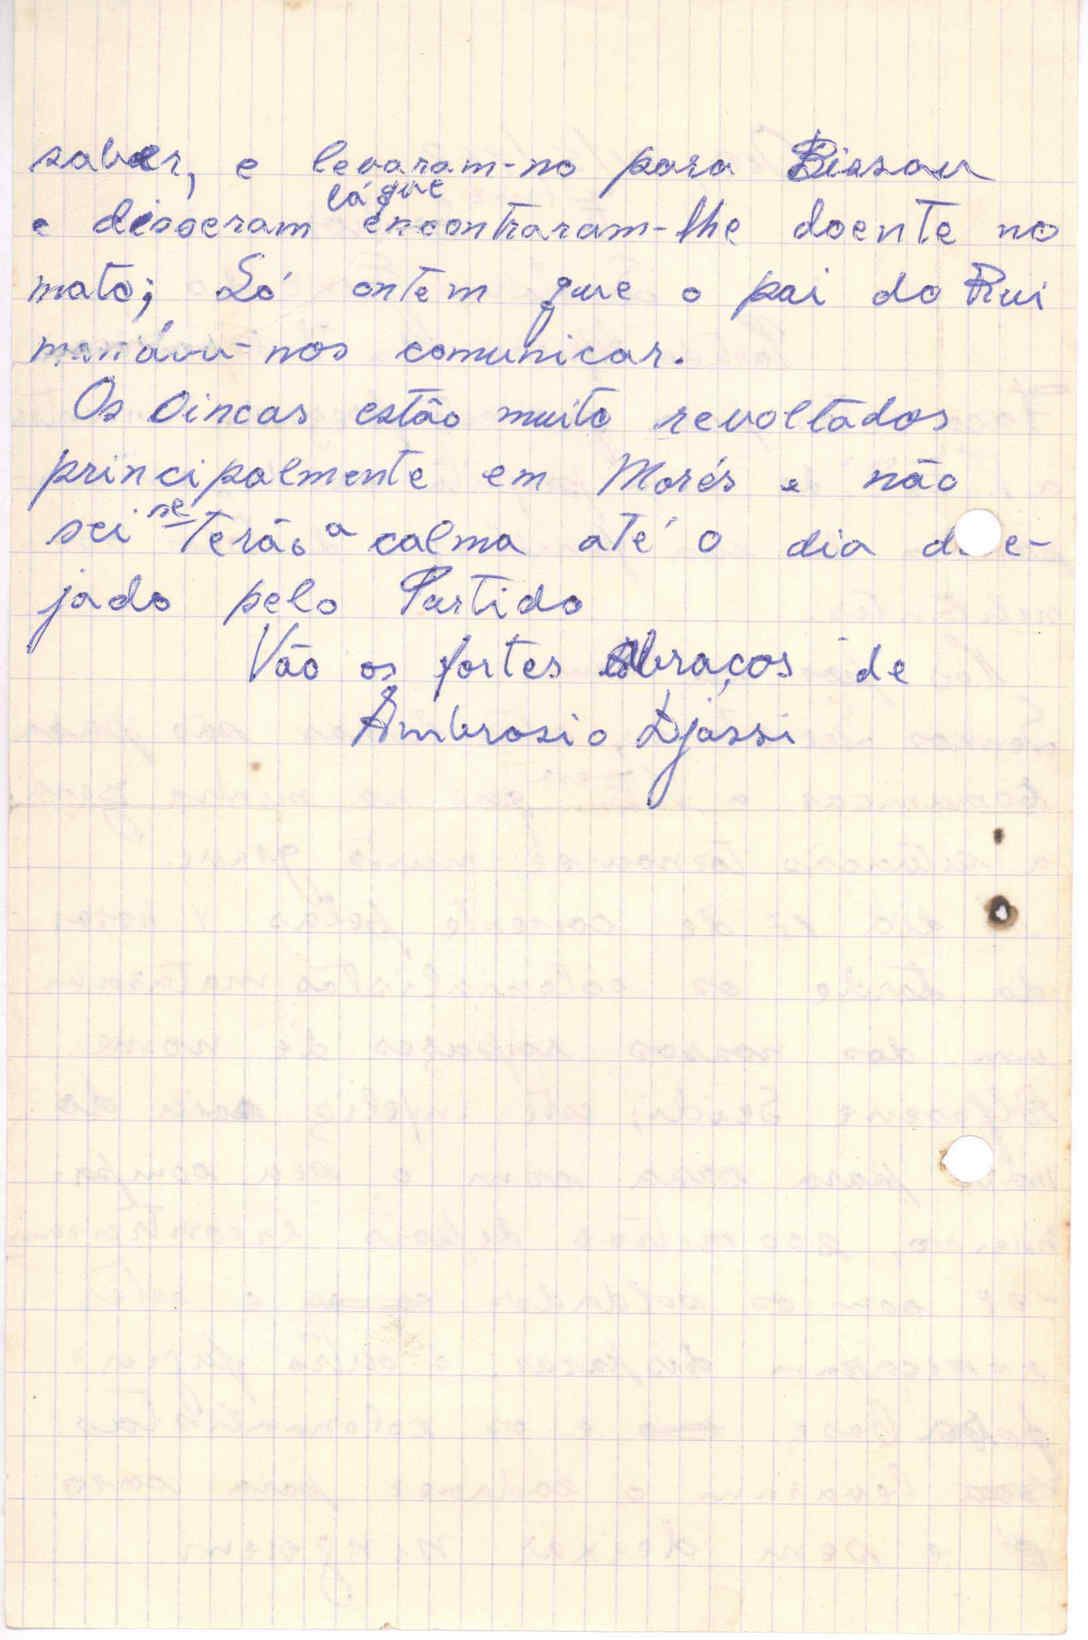 saber, e levaram-no para Bissau
e disseram lá que encontraram-lhe doente no
mato; Só ontem que o pai do Rui
mandou-nos comunicar.
Os Oincas estão muito revoltados
principalmente em Morés e não
sei se terão a calma até o dia dese-
jado pelo Partido
Vão os fortes abraços de
Ambrosio Djassi